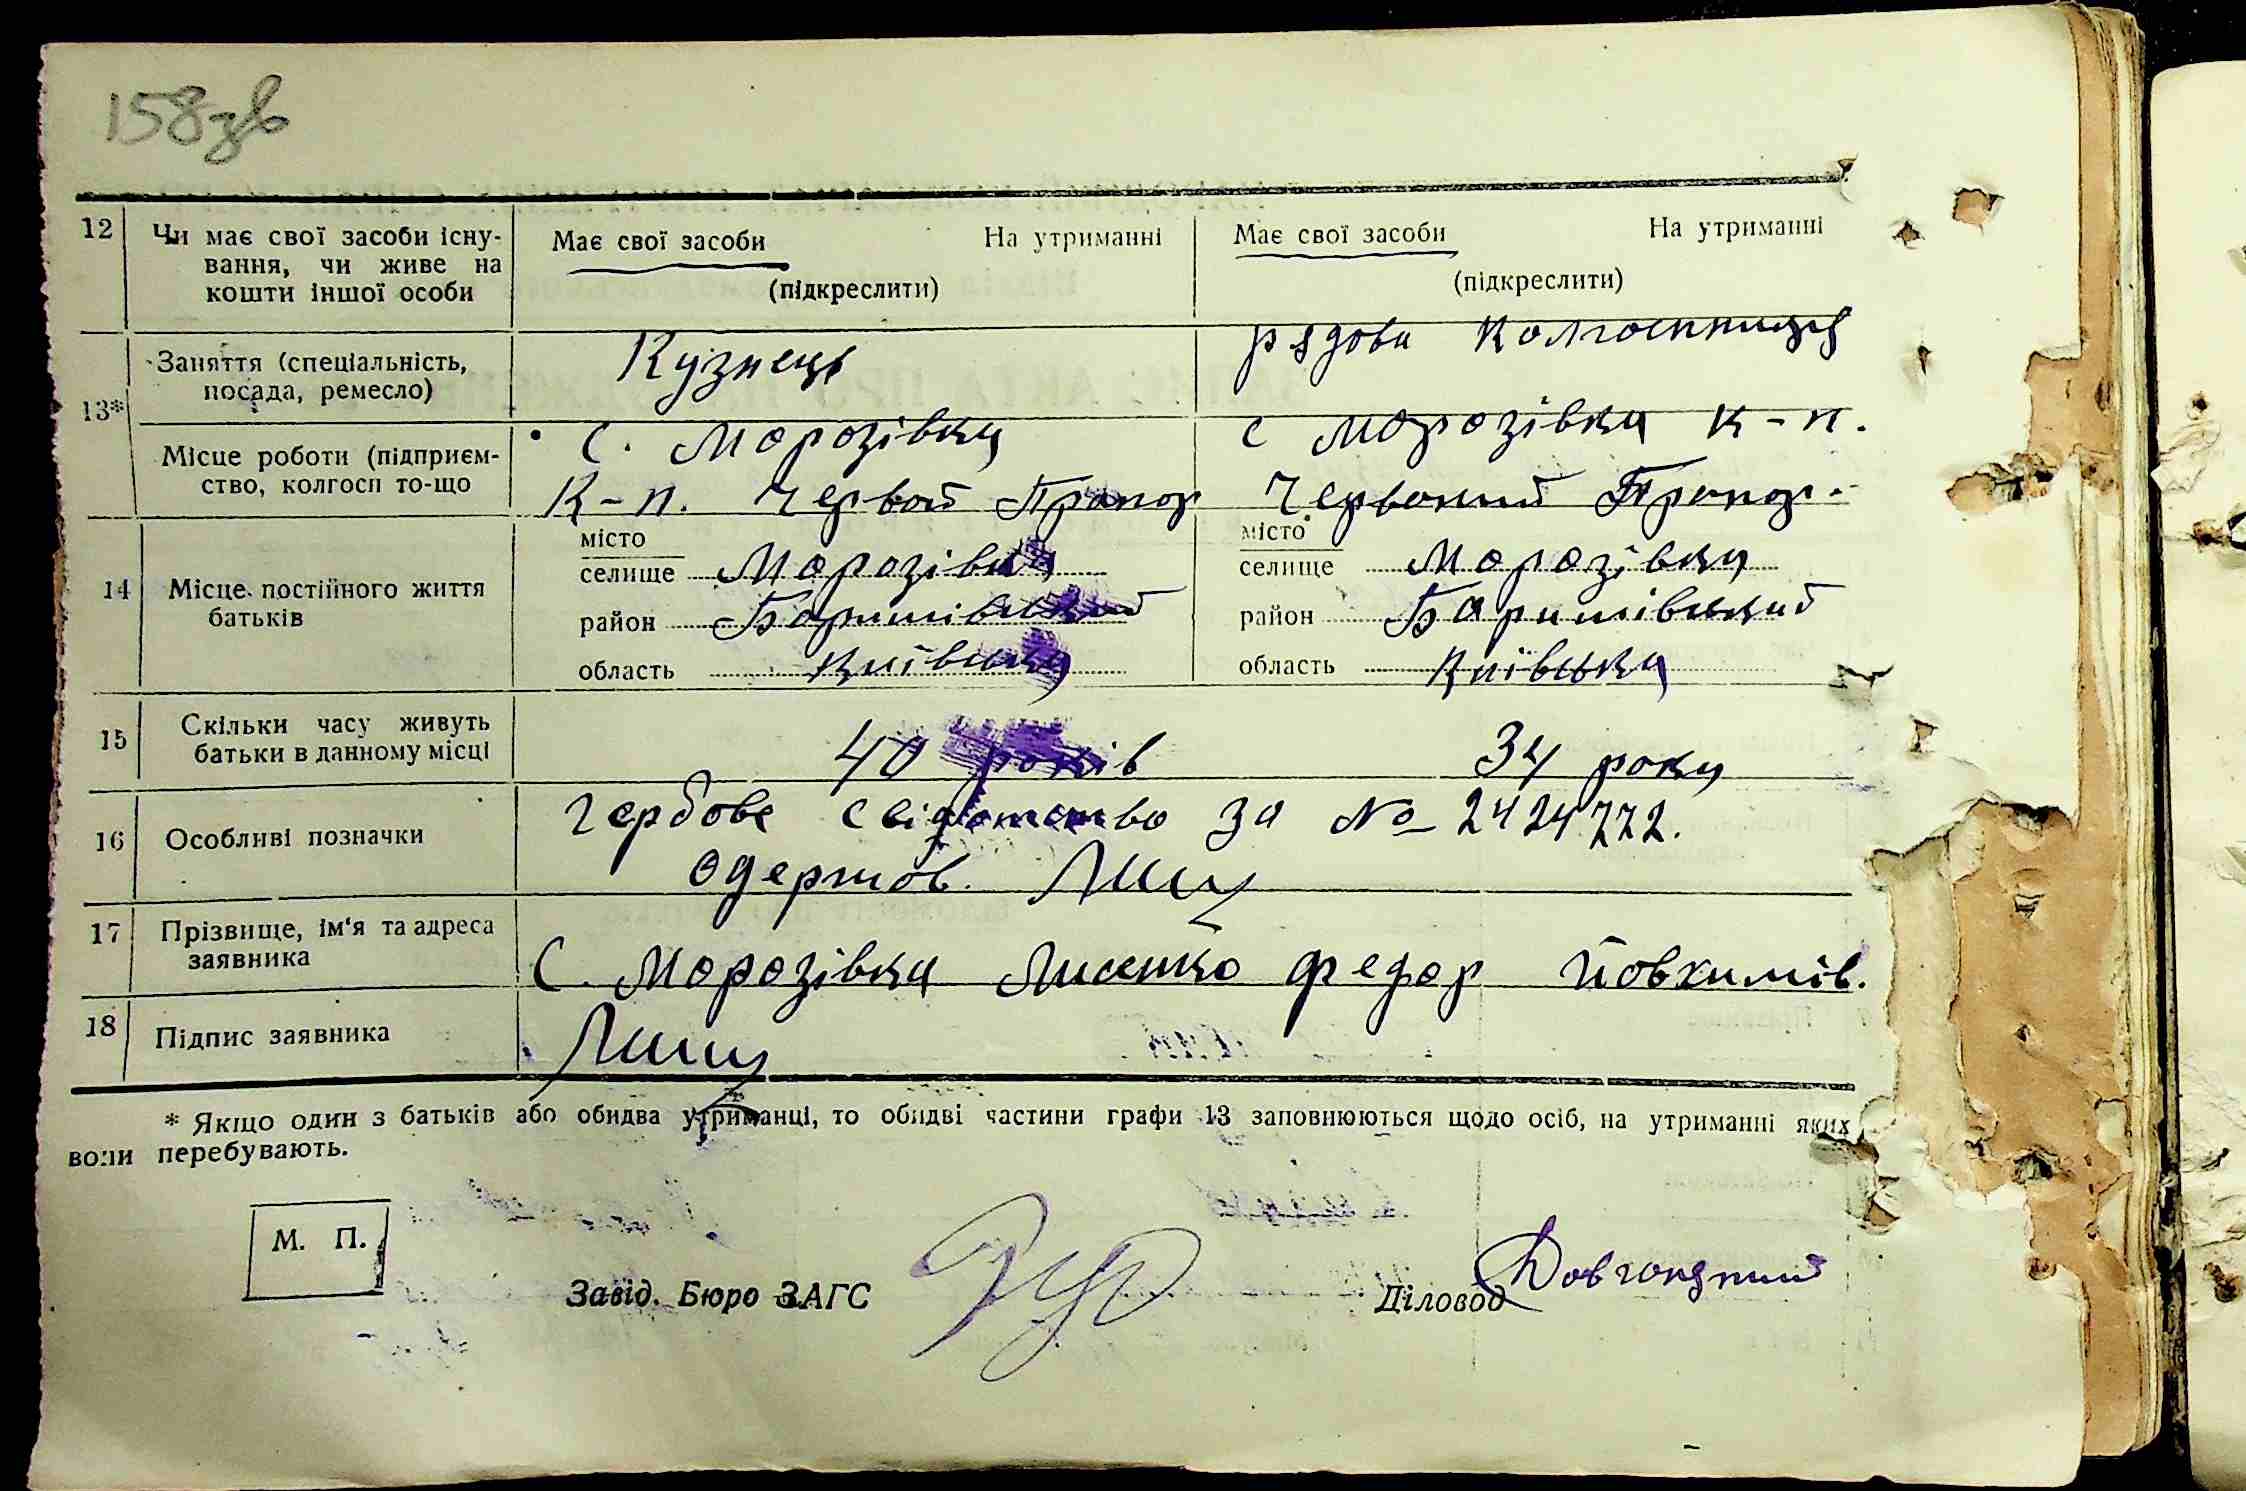 158зв
12 Чи має свої засоби існу-
вання, чи живе на
кошти іншої особи
Має свої засоби На утриманні
(підкреслити)
Має свої засоби На утриманні
(підкреслити)
13*
Заняття (спеціальність,
посада, ремесло)
Кузнець
рядова колгоспниця
Місце роботи (підприєм-
ство, колгосп то-що
С. Морозівка
К-п. Червой Прапор
с Морозівка к-п.
Червоний Прапор.
14 Місце постійного життя
батьків
місто
селище Морозівка
район Баришівський
область Київська
місто
селище Морозівка
район Баришівський
область Київська
15 Скільки часу живуть
батьки в данному місці
40 років
34 року
16 Особливі позначки
Гербове свідотство за № 2424772.
Одержав.
17 Прізвище, ім'я та адреса
заявника
С. Морозівка Лисенко Федор Йовхимів.
18 Підпис заявника
* Якщо один з батьків або обидва утриманці, то обидві частини графи 13 заповнюються щодо осіб, на утриманні яких
вони перебувають.
М. П.
Завід. Бюро ЗАГС
Діловод